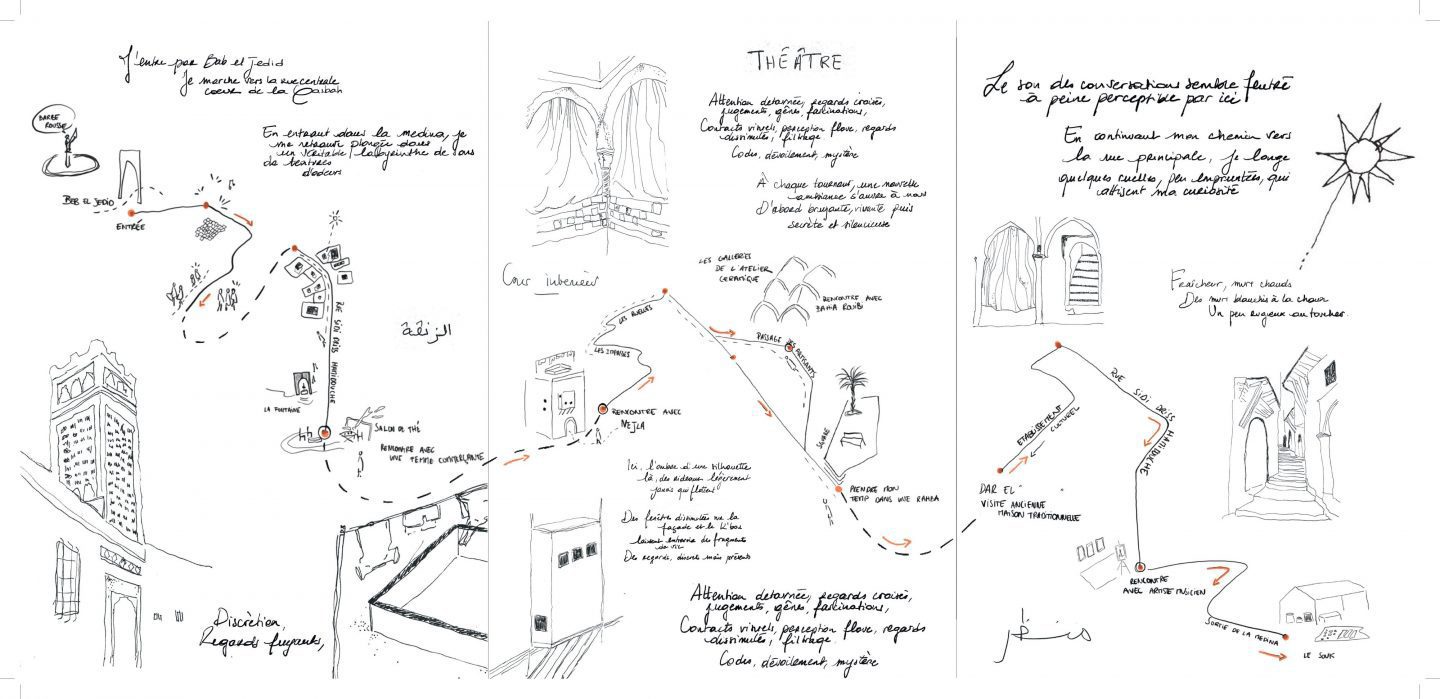 J'entre par Bab el Jedid
Je marche vers la rue centrale
coeur de la Casbah
BARBE
ROUSSE
En entrant dans la medina, je
me retrouve plongée dans
un véritable labyrinthe de sons
de textures
d'odeurs
BEB EL JEDID
ENTRÉE
RUE SIDI DRISS HAMIDOUCHE
الزنقة
LA FONTAINE
SALON DE THÉ
RENCONTRE AVEC
UNE FEMME COMMERÇANTE
Discrètion,
Regards fuyants,
THÉÂTRE
Attention detournée, regards croisés,
jugements, gênes, fascinations,
Contacts visuels, perception floue, regards
dissimulés, filtrage.
Codes, dévoilement, mystère
À chaque tournant, une nouvelle
ambiance s'ouvre à nous
D'abord bruyante, vivante puis
secrète et silencieuse
Cour interieur
LES GALLERIES
DE L'ATELIER
CERAMIQUE
RENCONTRE AVEC
BAHIA
LES RUELLES
LES IMPASSES
PASSAGE
RENCONTRE AVEC
NEJLA
SQUARE
PRENDRE MON
TEMP DANS UNE RAHBA
Ici, l'ombre d'une silhouette
là, des rideaux légèrement
Des fenêtres dissimulées sur la
façade et le K'bou
laissent entrevoir des fragments
de vie
Des regards, discrets mais présents
Attention detournée, regards croisés,
jugements, gênes, fascinations,
Contacts visuels, perception floue, regards
dissimulés, filtrage.
Codes, dévoilement, mystère
Le son des conversations semble feutré
à peine perceptible par ici
En continuant mon chemin vers
la rue principale, je longe
quelques ruelles, peu empruntées, qui
attisent ma curiosité
Fraîcheur, murs chauds
Des murs blanchis à la chaux
Un peu rugeux au toucher.
RUE SIDI DRISS HAMIDOUCHE
ETABLISSEMENT
CULTUREL
DAR EL
VISITE ANCIENNE
MAISON TRADITIONNELLE
RENCONTRE
AVEC ARTISTE MUSICIEN
SORTIE DE LA MEDINA
LE SOUK